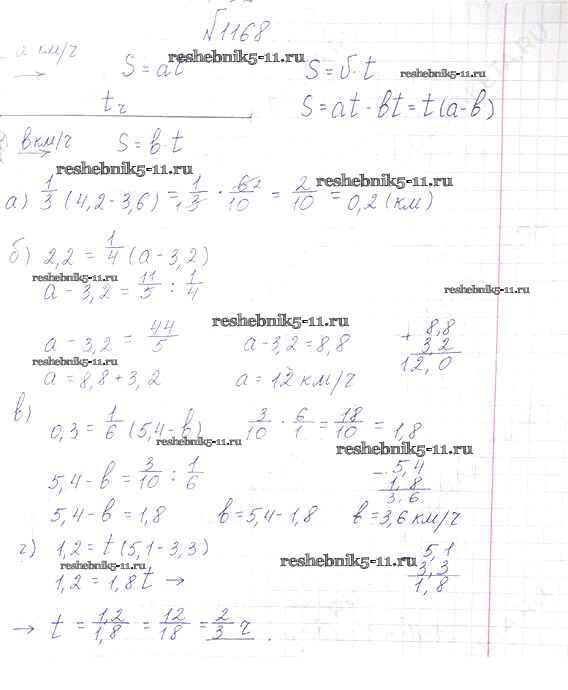 №1168
a км/ч
S = at
S = v·t
t ч
S = at - bt = t(a-b)
b км/ч
S = b·t
а) 1/3 (4,2-3,6) = 1/3 · 6/10 = 2/10 = 0,2 (км)
б) 2,2 = 1/4 (a - 3,2)
a - 3,2 = 11/5 : 1/4
a - 3,2 = 44/5
a - 3,2 = 8,8
+ 8,8
3,2
12,0
a = 8,8 + 3,2
a = 12 км/ч
в)
0,3 = 1/6 (5,4 - b)
3/10 · 6/1 = 18/10 = 1,8
5,4 - b = 3/10 : 1/6
- 5,4
1,8
3,6
5,4 - b = 1,8
b = 5,4 - 1,8
b = 3,6 км/ч
г) 1,2 = t (5,1 - 3,3)
5,1
3,3
1,8
1,2 = 1,8t →
→ t = 1,2/1,8 = 12/18 = 2/3 ч.
reshebnik5-11.ru
reshebnik5-11.ru
reshebnik5-11.ru
reshebnik5-11.ru
reshebnik5-11.ru
reshebnik5-11.ru
reshebnik5-11.ru
reshebnik5-11.ru
reshebnik5-11.ru
reshebnik5-11.ru
reshebnik5-11.ru
reshebnik5-11.ru
reshebnik5-11.ru